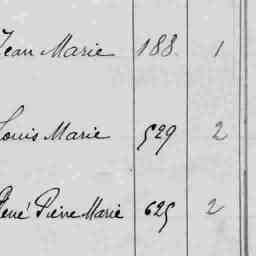 Jean Marie 188 1
Louis Marie 529 2
René Pierre Marie 625 2